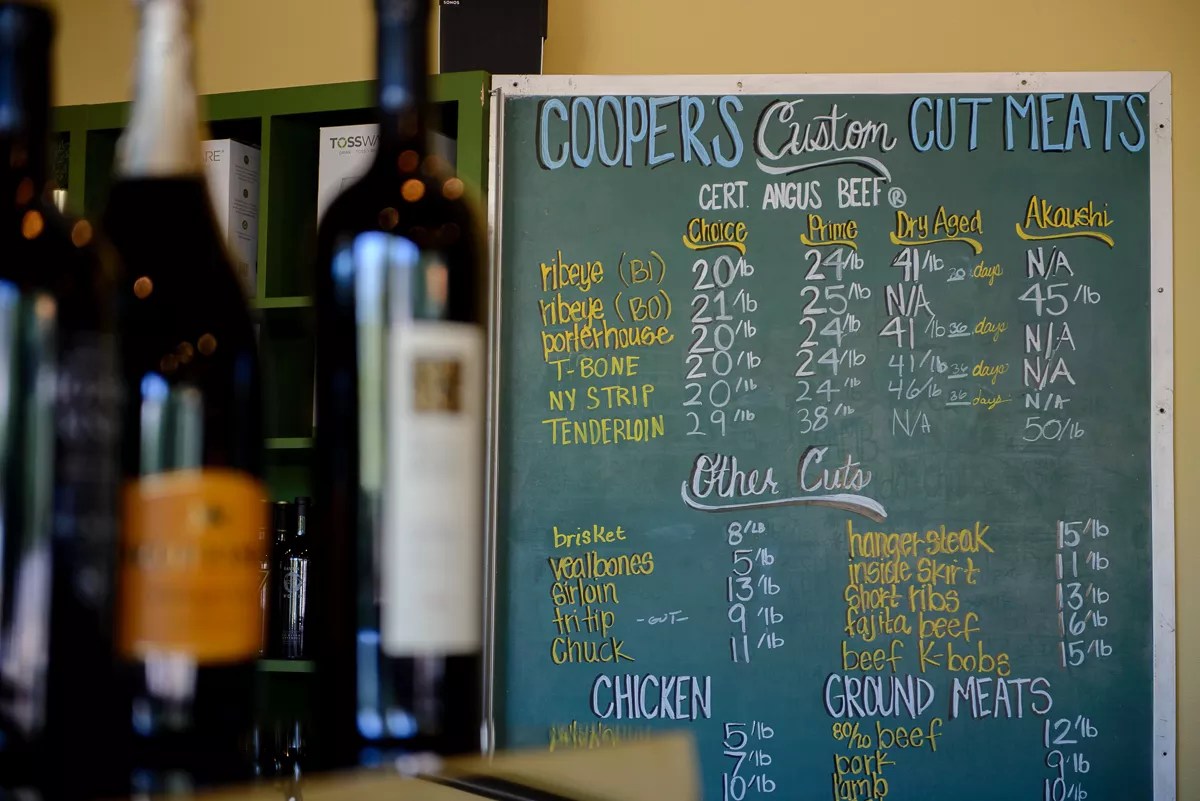 SONOS
TOSSWA
COOPER'S Custom CUT MEATS
CERT. ANGUS BEEF®
Choice Prime Dry Aged Akaushi
ribeye (BI) 20/lb 24/lb 41/lb 20 days N/A
ribeye (BO) 21/lb 25/lb N/A 45/lb
porterhouse 20/lb 24/lb 41/lb 36 days N/A
T-BONE 20/lb 24/lb 41/lb 36 days N/A
NY STRIP 20/lb 24/lb 46/lb 36 days N/A
TENDERLOIN 29/lb 38/lb N/A 50/lb
Other Cuts
brisket 8/LB hanger steak 15/lb
vealbones 5/lb inside skirt 11/lb
sirloin 13/lb short ribs 13/lb
tri tip -OUT- 9/lb fajita beef 16/lb
Chuck 11/lb beef K-bobs 15/lb
CHICKEN GROUND MEATS
5/lb 80/20 beef 12/lb
7/lb pork 9/lb
lamb